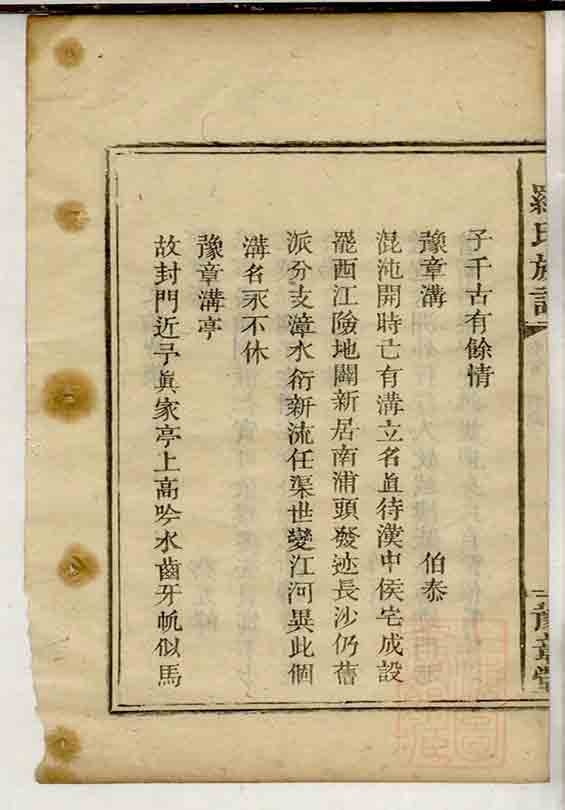 羅氏族譜
豫章堂
子千古有餘情
豫章溝 伯泰
混沌開時已有溝立名直待漢中侯宅成設
罷西江險地闢新居南浦頭發迹長沙仍舊
派分支漳水衍新流任渠世變江河異此個
溝名永不休
豫章溝亭
故封門近子眞家亭上高吟水齒牙帆似馬